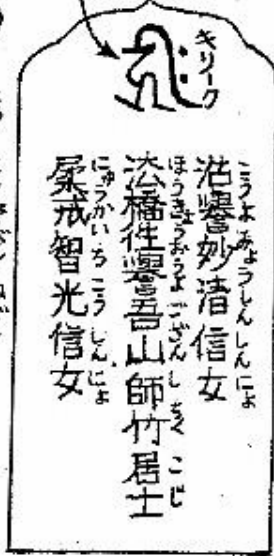 キリーク
こうよ みょうしん しんにょ
洽譽妙清信女
ほうきょうおうよ ござん し ちく こじ
法橋往譽吾山師竹居士
にゅうかい ちこう しんにょ
柔戒智光信女